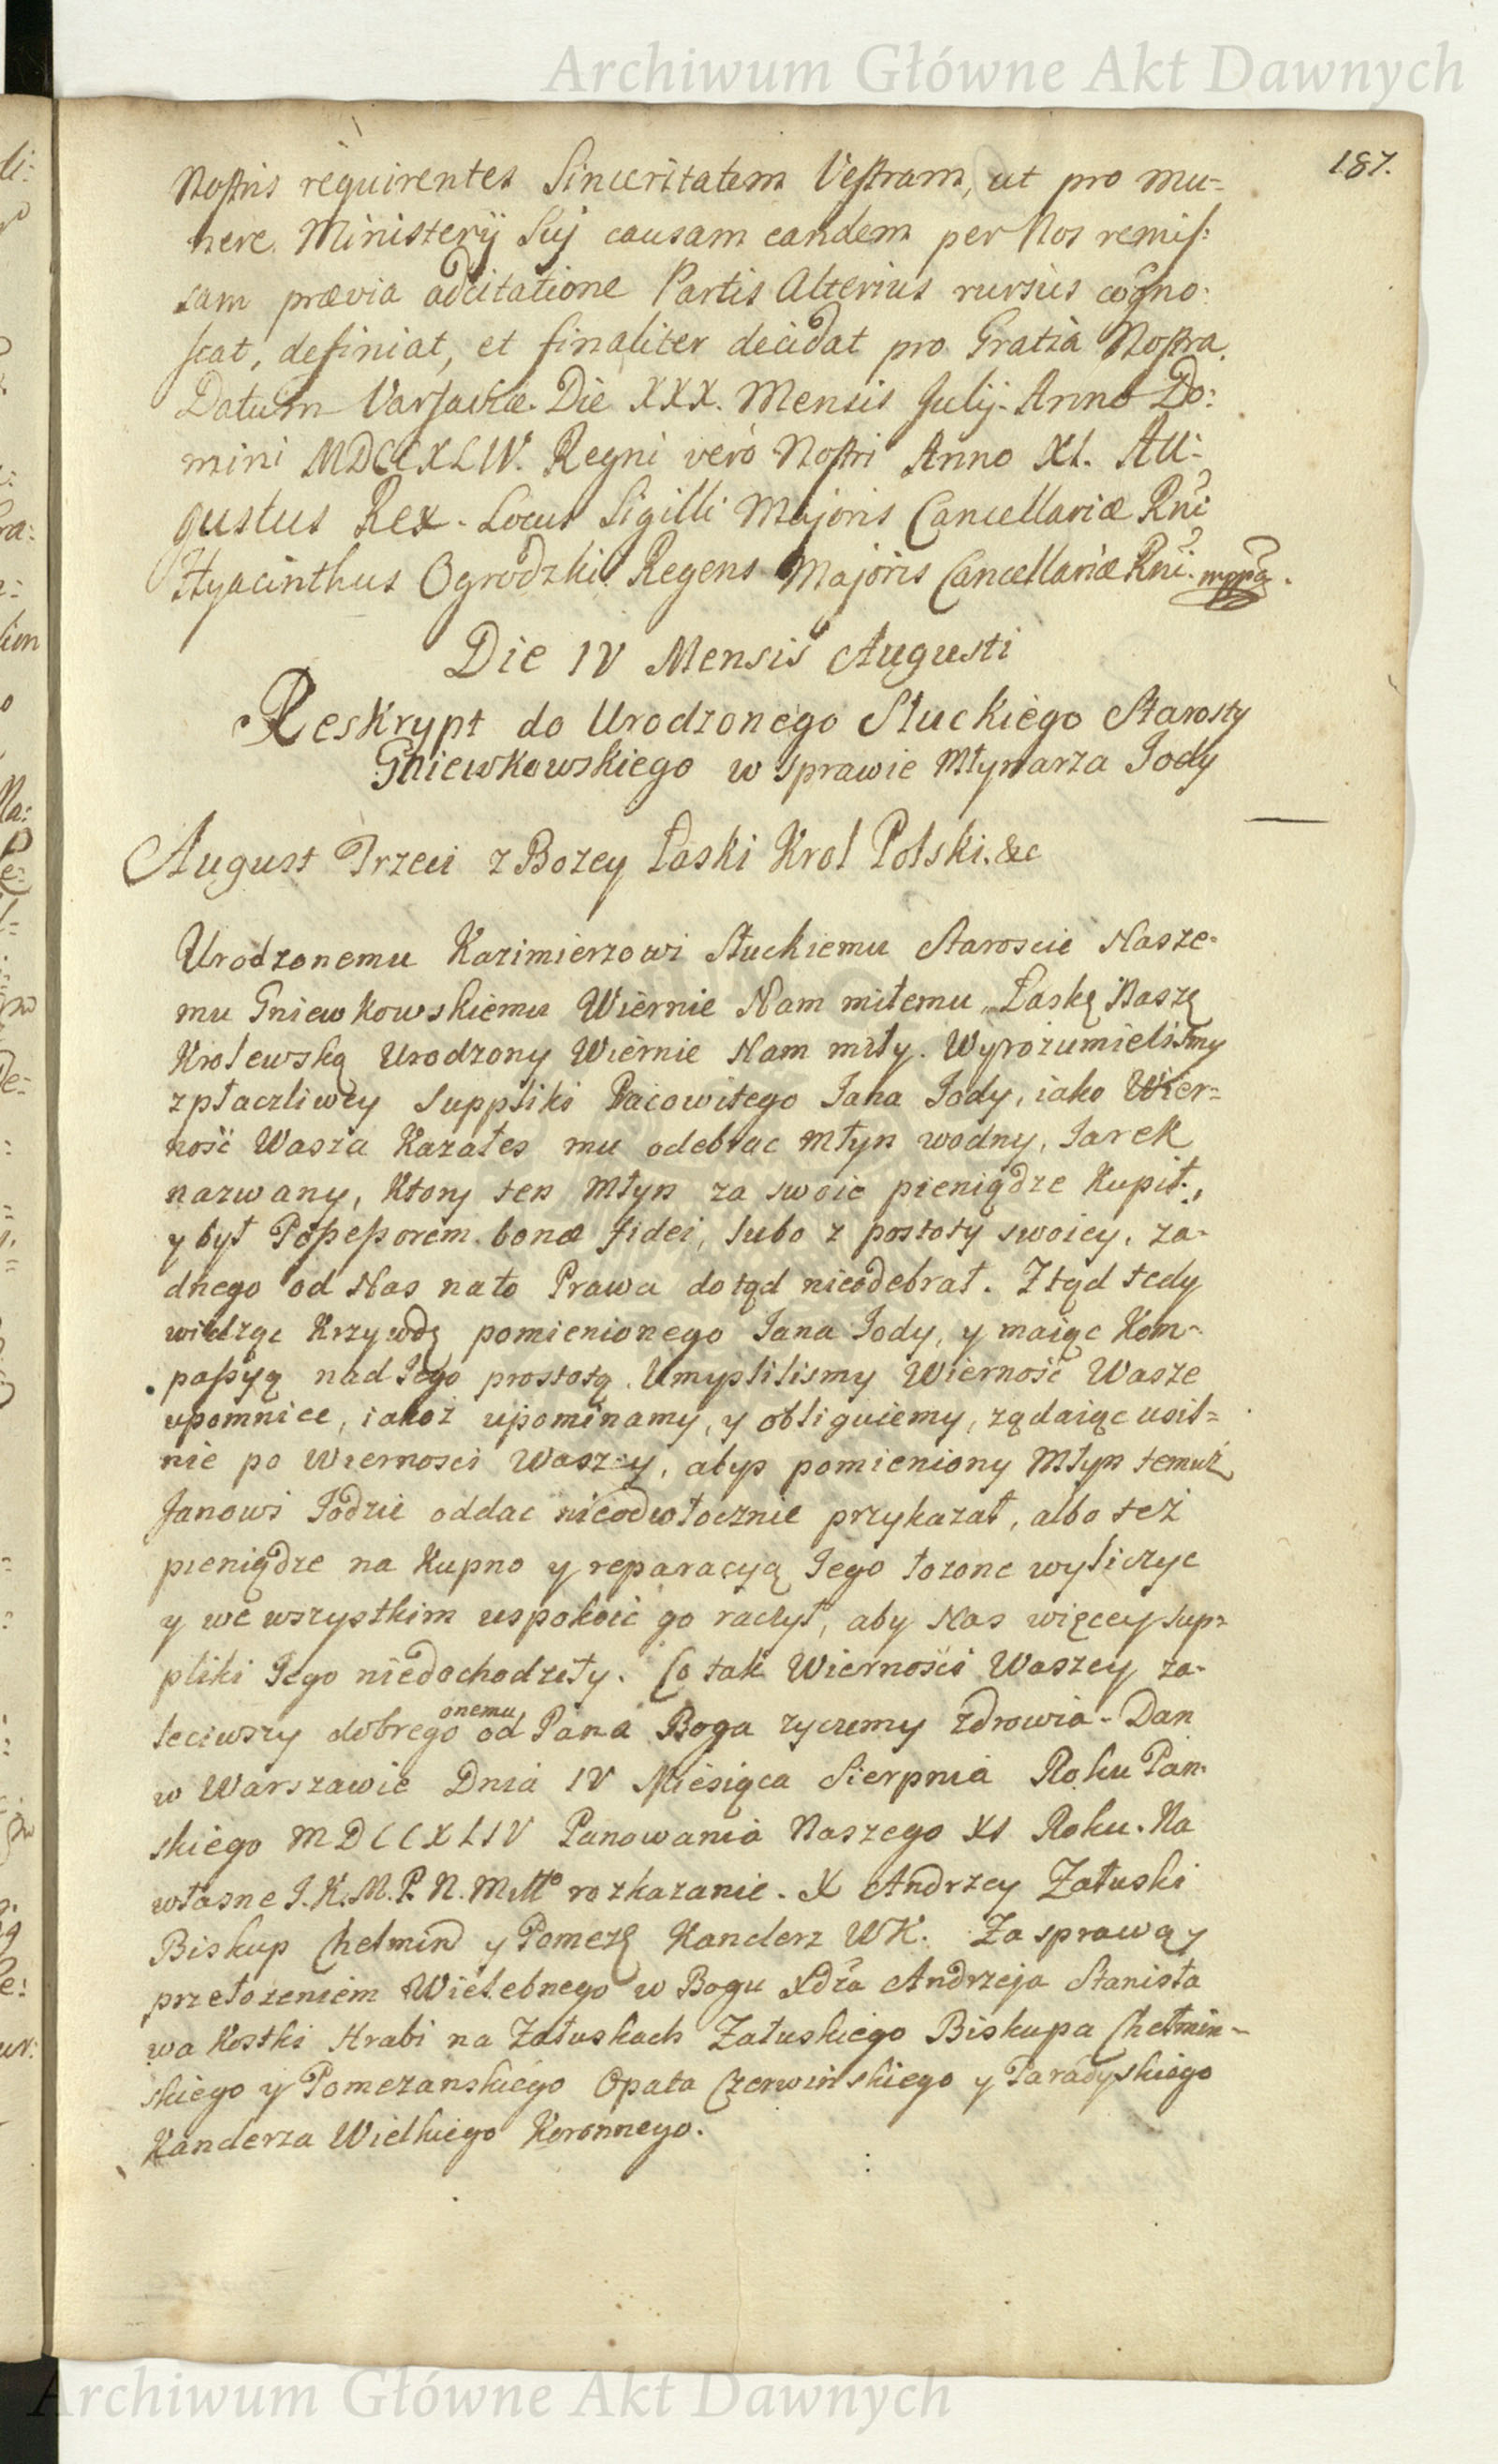 Archiwum Główne Akt Dawnych
187.
Nostris requirentes Sinceritatem Vestram, ut pro mu=
nere Ministerij Sui causam eandem per Nos remis=
sam prævia adcitatione Partis Alterius rursus cogno=
scat, definiat, et finaliter decidat pro Gratia Nostra.
Datum Varsaviæ. Die XXX. Mensis Julij. Anno Do:
mini MDCCXLIV. Regni verò Nostri Anno XI. Au=
gustus Rex. Locus Sigilli Majoris Cancellariæ Rni
Hyacinthus Ogrodzki Regens Majoris Cancellariæ Rni. mppa.
Die IV Mensis Augusti
Reskrypt do Urodzonego Słuckiego Starosty
Gniewkowskiego w sprawie Młynarza Jody
August Trzeci z Bozey Łaski Krol Polski. &c
Urodzonemu Kazimierzowi Słuckiemu Staroscie Nasze=
mu Gniewkowskiemu Wiernie Nam miłemu Łaskę Naszę
Krolewską Urodzony Wiernie Nam miły. Wyrozumielismy
zpłaczliwey Suppliki Pracowitego Jana Jody, iako Wier=
ność Wasza Kazałes mu odebrac młyn wodny, Jarek
nazwany, Ktory ten Młyn za swoie pieniądze Kupił,
y był Possessorem bonæ fidei, lubo z postoty swoiey, za=
dnego od Nas nato Prawa dotąd nieodebrał. Ztąd tedy
widząc Krzywdę pomienionego Jana Jody, y maiąc Kom=
passyą nad Jego prostotą. Umyslilismy Wierność Wasze
upomniec, iakoż upominamy, y obliguiemy, ządaiąc usil=
nie po Wiernosci Waszey, abys pomieniony Młyn temuż
Janowi Jodzie oddac nieodwłocznie przykazał, albo też
pieniądze na Kupno y reparacyą Jego łozone wyliczyc
y we wszystkim uspokoić go raczył, aby Nas więcey Sup=
pliki Jego niedochodziły. Co tak Wierności Waszey za=
leciwszy dobrego onemu od Pana Boga zyczemy zdrowia. Dan
w Warszawie Dnia IV Miesiąca Sierpnia Roku Pan=
skiego MDCCXLIV Panowania Naszego XI Roku. Na
własne J.K.M.P.N.Młło rozkazanie. X Andrzey Załuski
Biskup Chelmin y Pomez Kanclerz WK. Za sprawą y
przełozeniem Wielebnego w Bogu Xdza Andrzeja Stanisła
wa Kostki Hrabi na Załuskach Załuskiego Biskupa Chełmin=
skiego y Pomezanskiego Opata Czerwińskiego y Paradyskiego
Kanclerza Wielkiego Koronnego.
Archiwum Główne Akt Dawnych